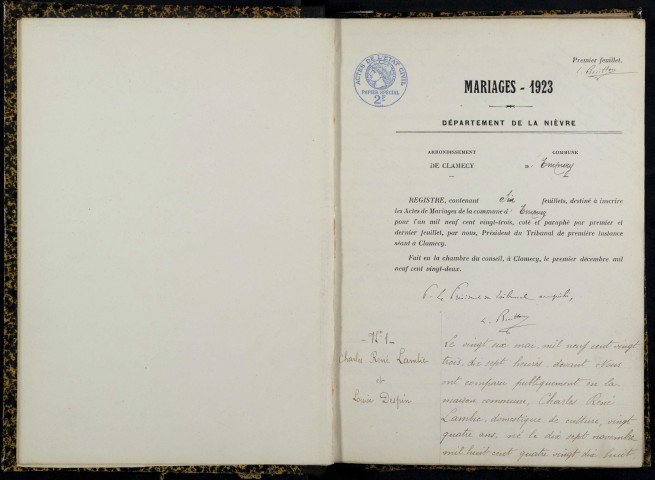 Premier feuillet.
ACTES DE L'ÉTAT CIVIL
PAPIER SPÉCIAL
2F
MARIAGES - 1923
DÉPARTEMENT DE LA NIÈVRE
ARRONDISSEMENT
DE CLAMECY
COMMUNE
REGISTRE, contenant six feuillets, destiné à inscrire
les Actes de Mariages de la commune d'
pour l'an mil neuf cent vingt-trois, coté et paraphé par premier et
dernier feuillet, par nous, Président du Tribunal de première instance
séant à Clamecy.
Fait en la chambre du conseil, à Clamecy, le premier décembre mil
neuf cent vingt-deux.
P. le Président du tribunal
N° 1
Charles René Lambe
et
Louise
Le vingt six mai, mil neuf cent vingt
trois, dix sept heures, devant Nous
ont comparu publiquement en la
maison commune, Charles René
Lambe, domestique de culture, vingt
quatre ans, né le dix sept novembre
mil huit cent quatre vingt dix huit